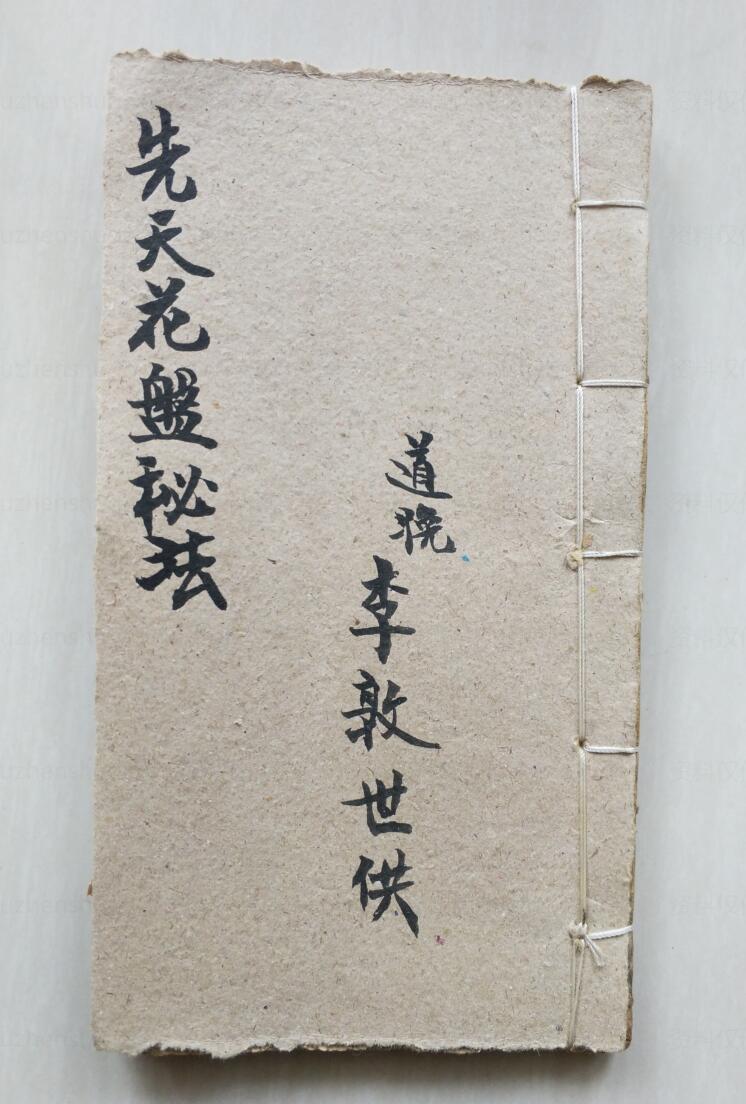 先天花盤秘法
道晚
李敦世供